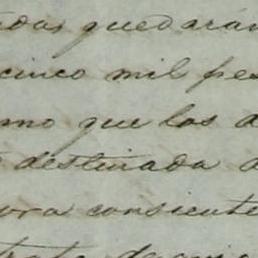 quedarán
cinco mil pes
mo que las d
destinada a
ora consiente